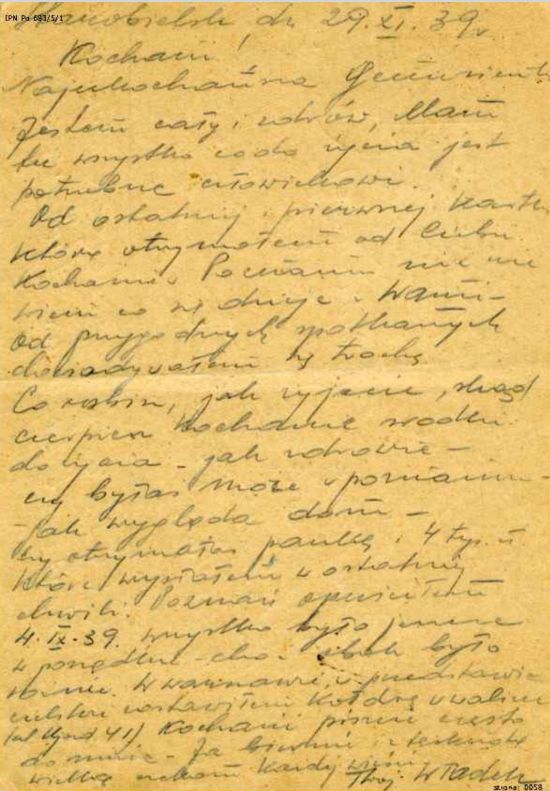 IPN Po 683/5/1
Starobielsk, dn 29.XI.39r
Kochani!
Najukochańsza
Jestem cały i zdrów, Mam
tu wszystko co do życia jest
potrzebne człowiekowi.
Od ostatniej i pierwszej kartki
którą otrzymałem od Ciebie
Kochanie z Poznania nic nie
wiem co się dzieje z Wami -
od przygodnych spotkanych
dowiadywałem się trochę
Co robisz, jak żyjecie, skąd
czerpiesz Kochanie środki
do życia - jak zdrowie -
czy byłaś może w Poznaniu -
- jak wygląda dom -
czy otrzymałaś paczkę i 4 tys. zł
które wysłałem w ostatniej
chwili. Poznań opuściłem
4.IX.39. wszystko było jeszcze
w porządku - było
W Warszawie, w przedstawi-
cielstwie zostawiłem kołdrę i walizę
41) Kochani piszcie często
do mnie - Ja z tęsknotą
wielką czekam każdej
Twój Władek
strona: 0058